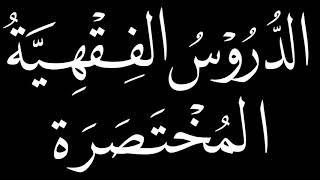 الدُّرُوْسُ الفِقْهِيَّةُ
المُخْتَصَرَة